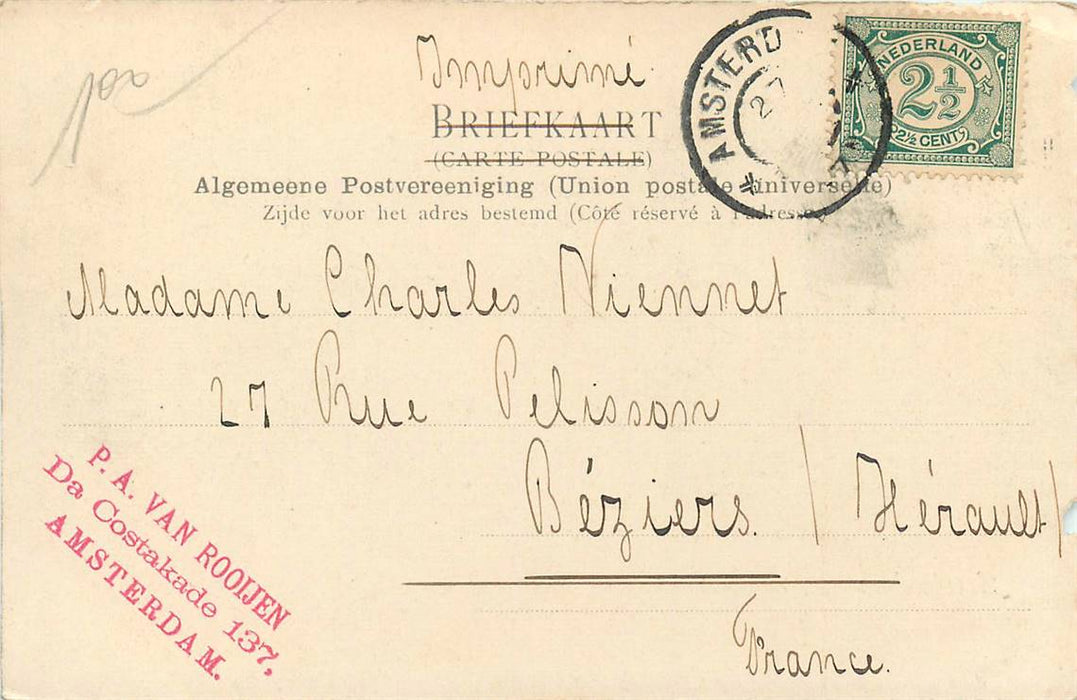 100
Imprimé
BRIEFKAART
(CARTE POSTALE)
Algemeene Postvereeniging (Union postale universelle)
Zijde voor het adres bestemd (Côté réservé à l'adresse)
AMSTERD
27
NEDERLAND
2½
2½ CENT
Madame Charles Viennet
27 Rue Pelisson
Béziers. (Hérault)
France.
P. A. VAN ROOIJEN
Da Costakade 137,
AMSTERDAM.